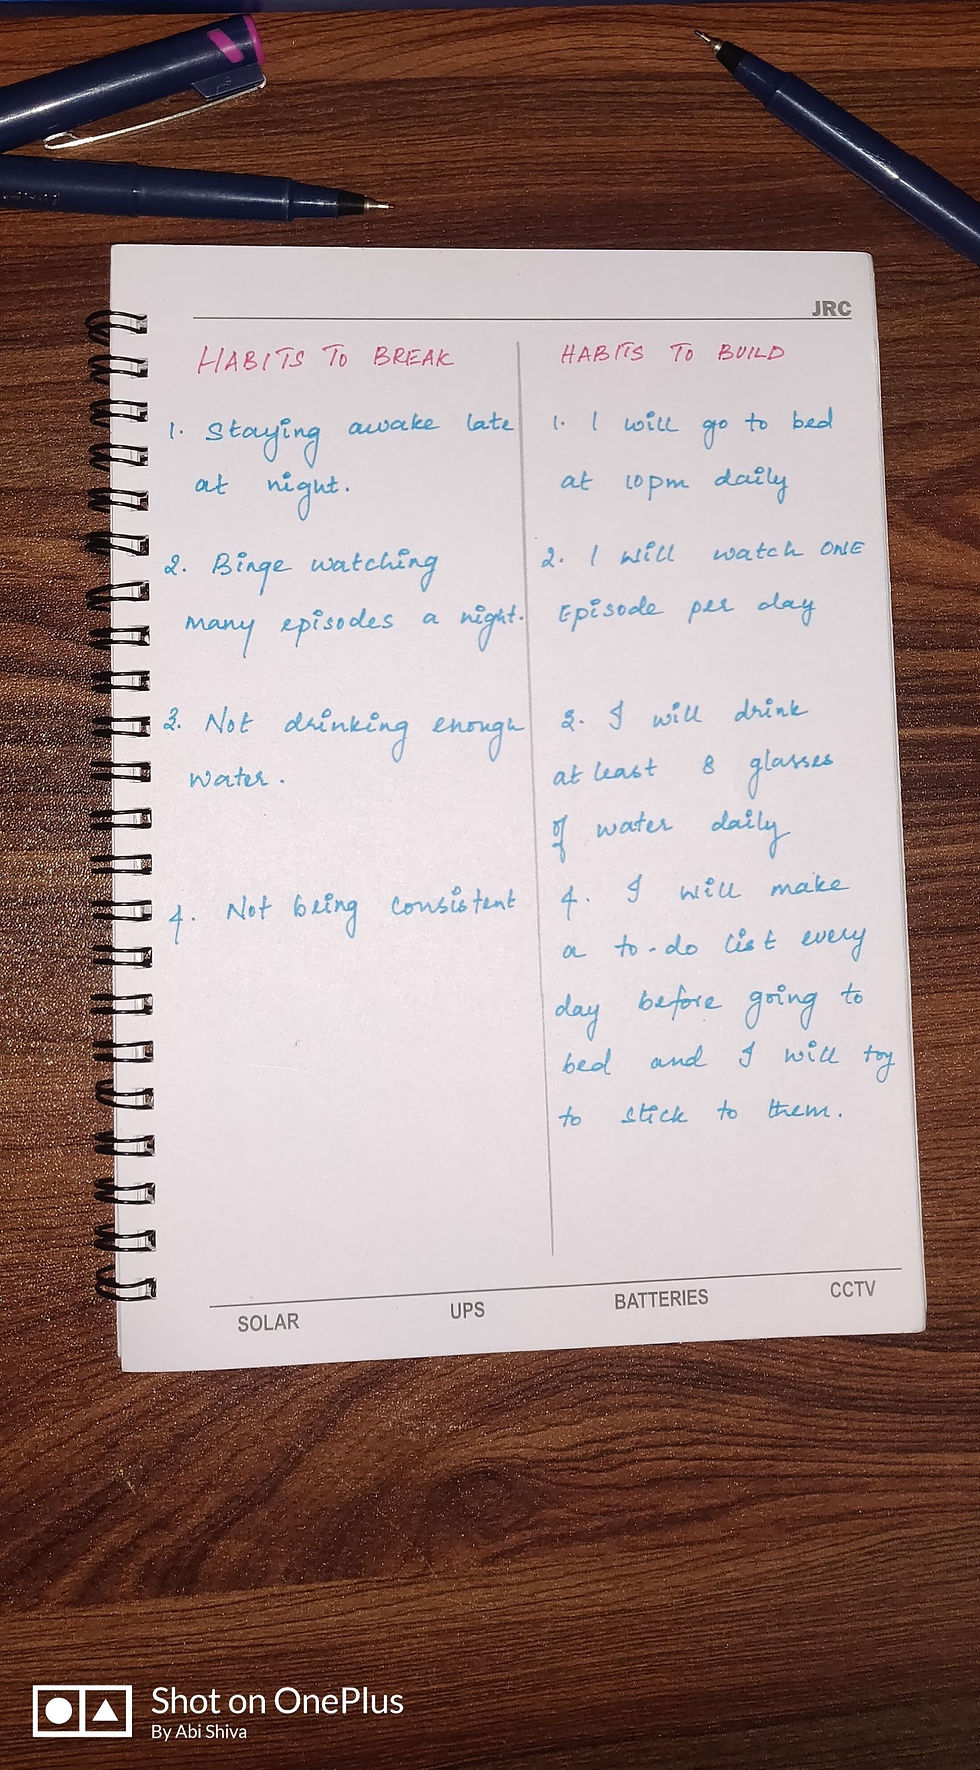 JRC
HABITS TO BREAK
1. Staying awake late
at night.
2. Binge watching
many episodes a night.
3. Not drinking enough
water.
4. Not being consistent
HABITS TO BUILD
1. I will go to bed
at 10pm daily
2. I will watch ONE
Episode per day
3. I will drink
at least 8 glasses
of water daily
4. I will make
a to-do list every
day before going to
bed and I will try
to stick to them.
SOLAR UPS BATTERIES CCTV
Shot on OnePlus
By Abi Shiva